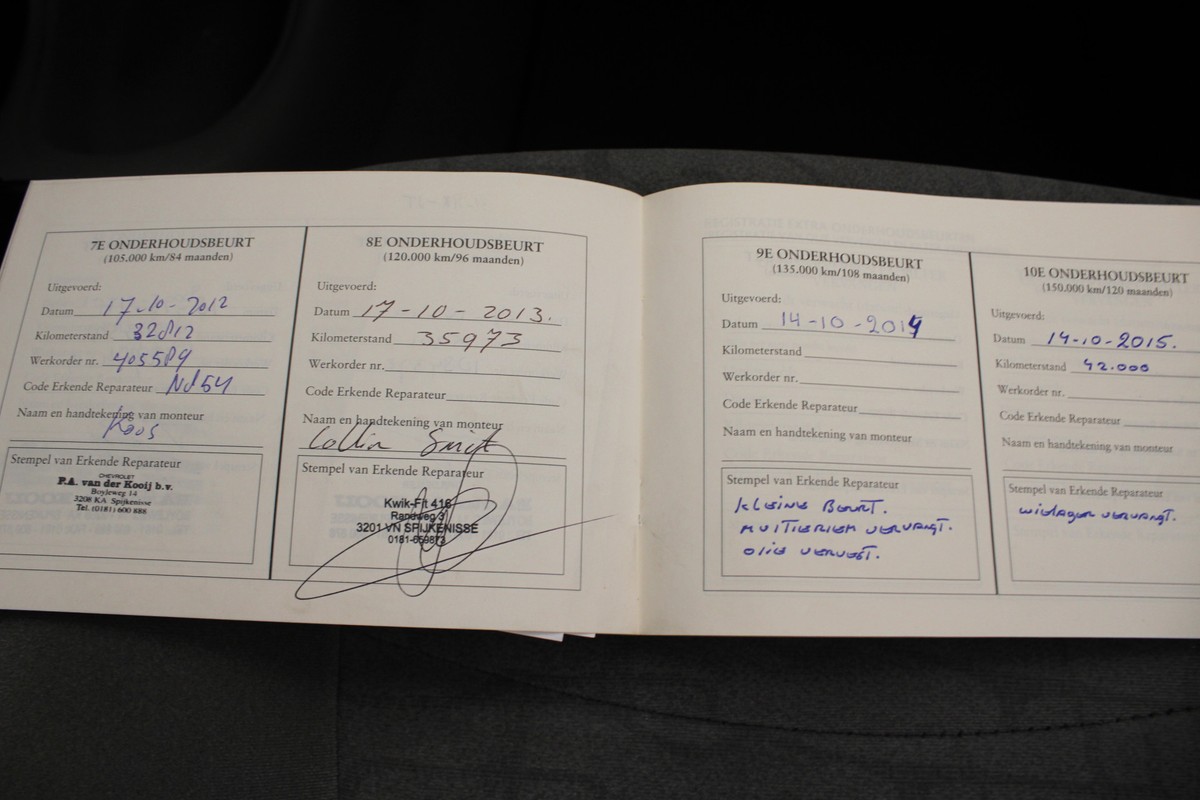 7E ONDERHOUDSBEURT
(105.000 km/84 maanden)
Uitgevoerd:
Datum 17-10-2012
Kilometerstand 32812
Werkorder nr. 405589
Code Erkende Reparateur
Naam en handtekening van monteur
Stempel van Erkende Reparateur
CHEVROLET
P.A. van der Kooij b.v.
Boyleweg 14
3208 KA Spijkenisse
Tel. (0181) 600 888
8E ONDERHOUDSBEURT
(120.000 km/96 maanden)
Uitgevoerd:
Datum 17-10-2013.
Kilometerstand 35973
Werkorder nr.
Code Erkende Reparateur
Naam en handtekening van monteur
Stempel van Erkende Reparateur
Kwik-Fit 416
Randweg 3
3201 VN SPIJKENISSE
0181-659873
9E ONDERHOUDSBEURT
(135.000 km/108 maanden)
Uitgevoerd:
Datum 14-10-2014
Kilometerstand
Werkorder nr.
Code Erkende Reparateur
Naam en handtekening van monteur
Stempel van Erkende Reparateur
Kleine Beurt.
olie ververst.
10E ONDERHOUDSBEURT
(150.000 km/120 maanden)
Uitgevoerd:
Datum 14-10-2015.
Kilometerstand 42.000
Werkorder nr.
Code Erkende Reparateur
Naam en handtekening van monteur
Stempel van Erkende Reparateur
wiellager vervangt.